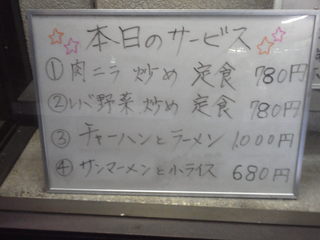 本日のサービス
①肉ニラ炒め定食 780円
②レバ野菜炒め定食 780円
③チャーハンとラーメン 1,000円
④サンマーメンと小ライス 680円